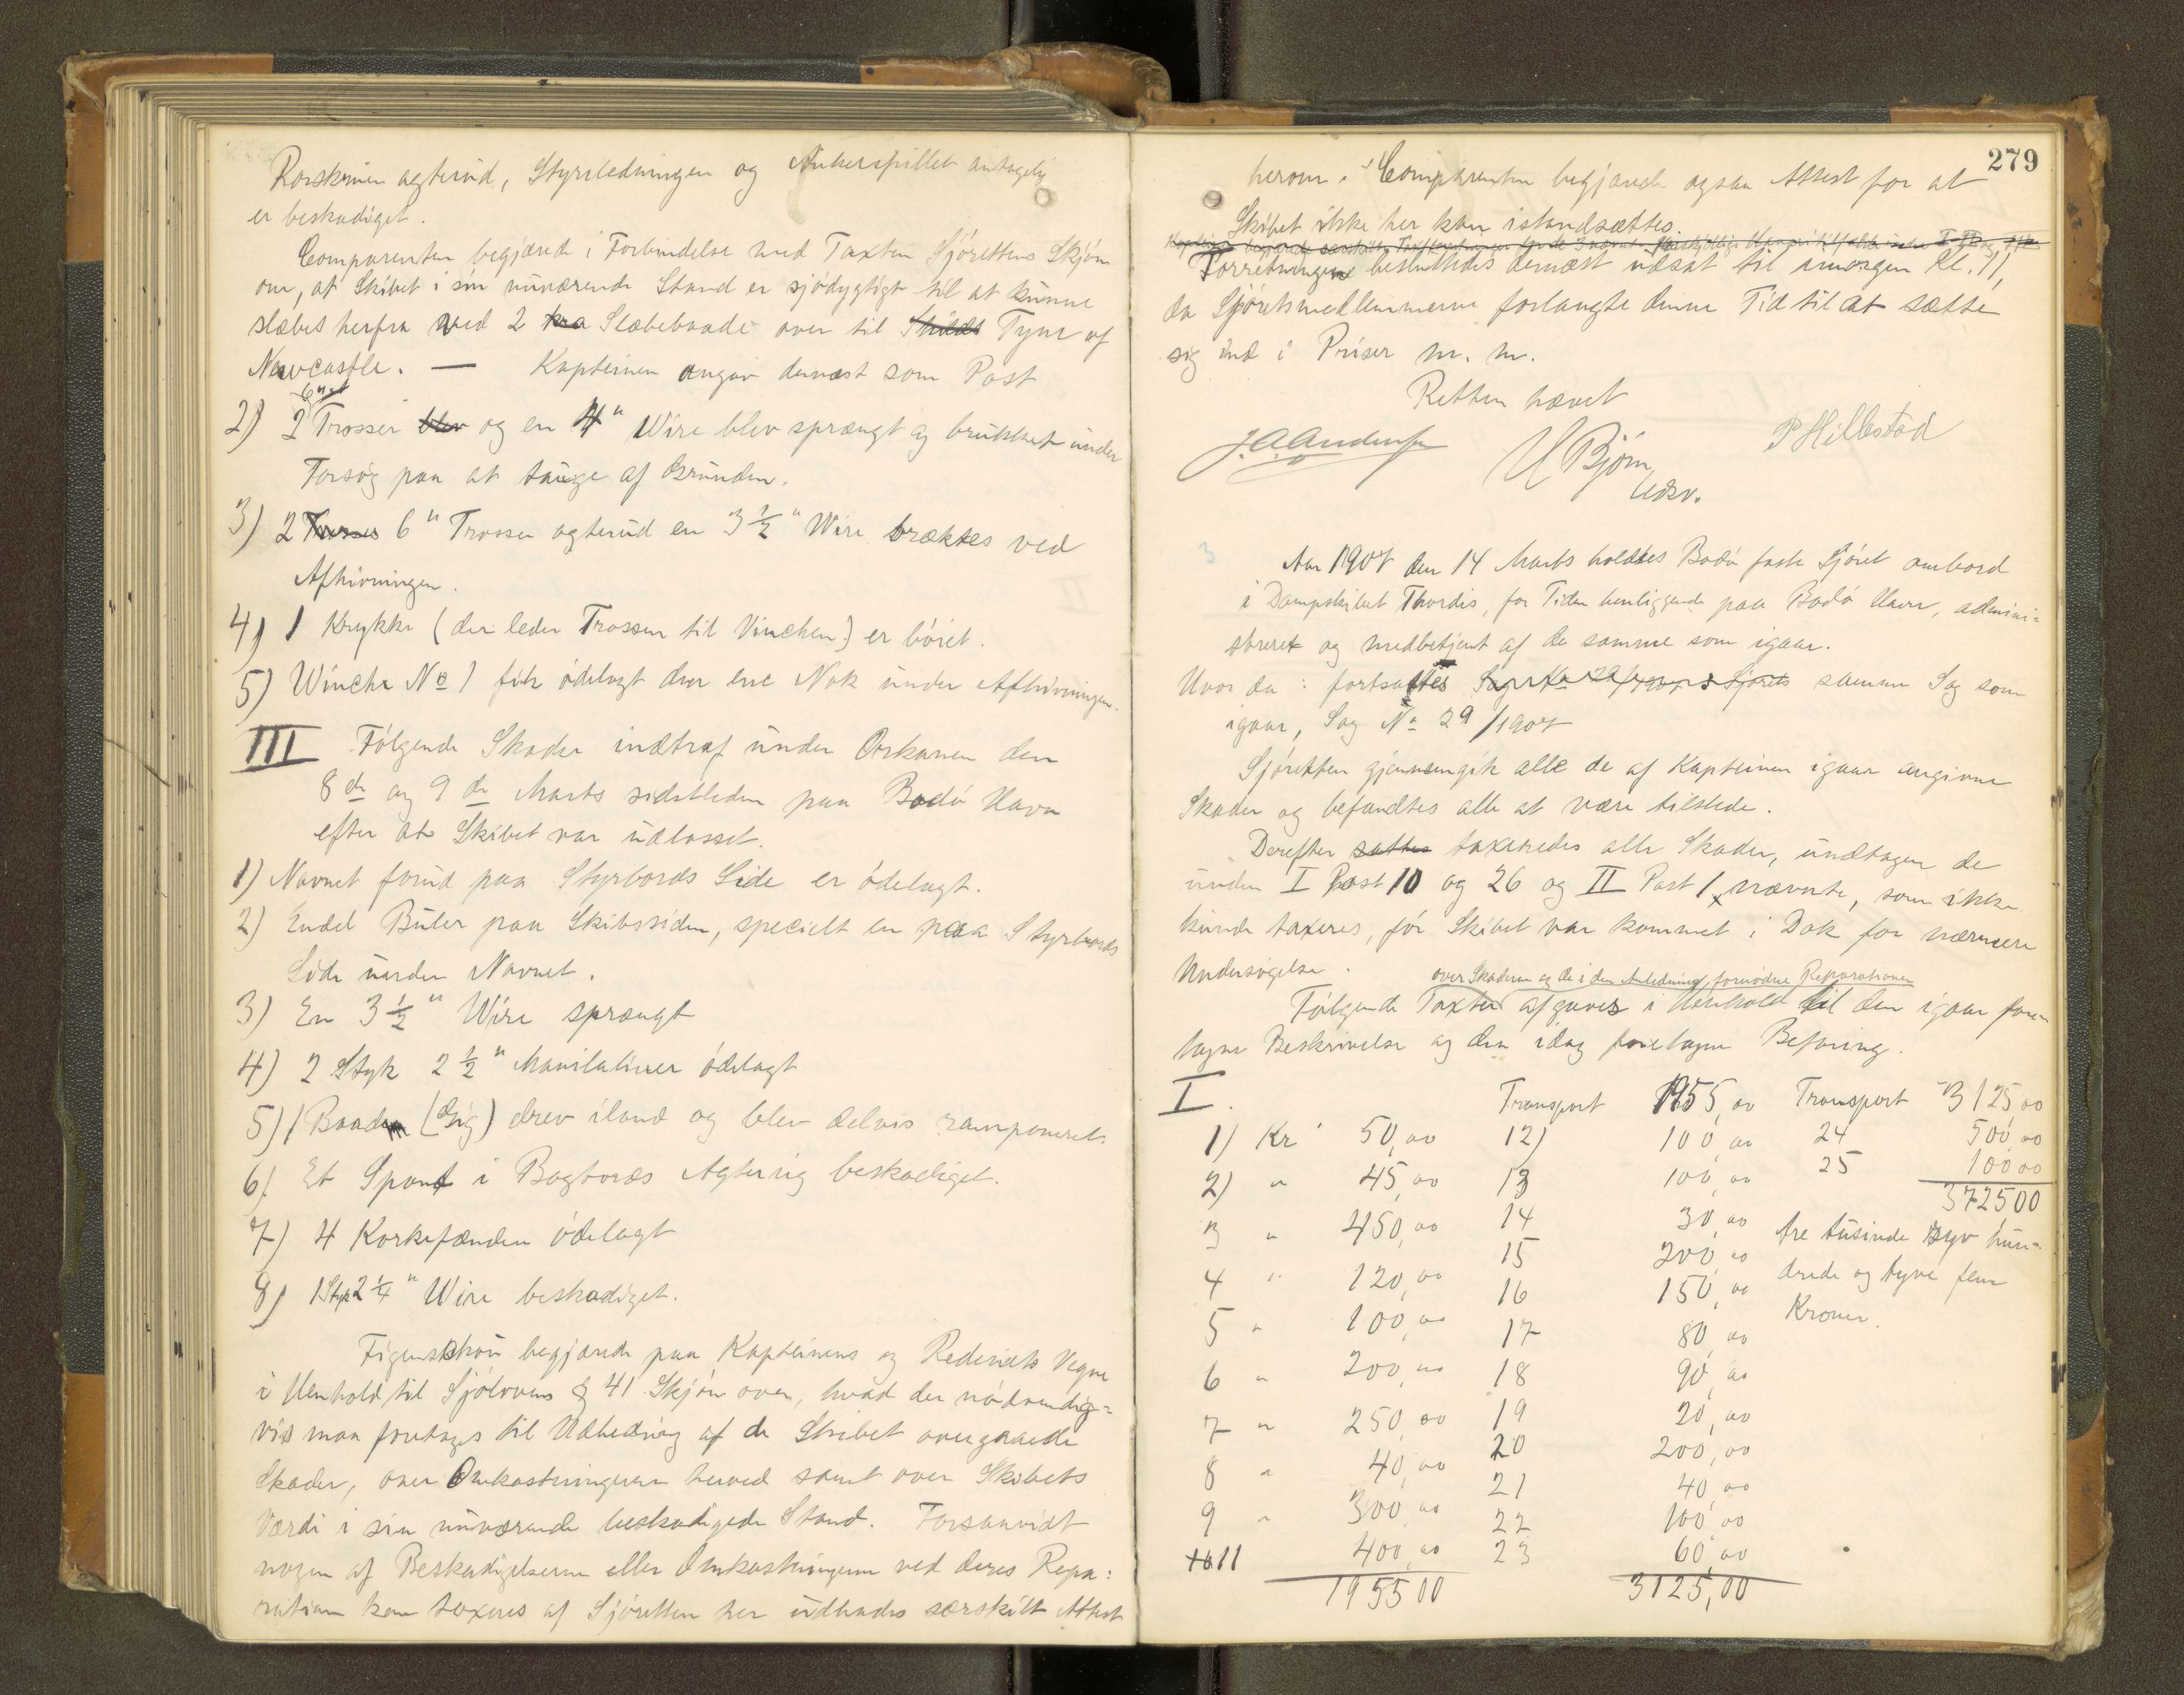 Rorskinnen agterud, Styrsledningen og Ankerspillet antagelig
er beskadiget.
Comparenten begjærede i Forbindelse med Taxten Sjörettens Skjön
om, at Skibet i sin nuværende Stand er sjödygtigt til at kunne
slæbes herfra ved 2 Slæbebaade over til Shilds Tyne af
Newcastle. — Kapteinen angav dernæst som Post
2) 2 6" Trosser blev og en 4" Wire blev sprængt og brukket under
Forsög paa at tauge af Grunden.
3) 2 Trosser 6" Trosser agterud en 3 1/2" Wire brækkes ved
Afhivningen.
4) 1 Krykke (der leder Trossen til Vinchen) er böiet.
5) Winche No 1 fik ödelagt den ene Nok under Afhivningen.
III Fölgende Skader indtraf under Orkanen den
8de og 9de Marts sidstleden paa Bodö Havn
efter at Skibet var udlosset.
1) Navnet forud paa Styrbords Side er ödelagt.
2) Endel Buler paa Skibssiden, specielt en paa Styrbords
Side under Navnet.
3) En 3 1/2" Wire sprængt
4) 2 Styk 2 1/2" Manilaliner ödelagt
5) 1 Baad (Gig) drev iland og blev delvis ramponeret.
6) Et Spant i Bagbords Agterrig beskadiget.
7) 4 Korkefænder ödelagt
8) 1 Styk 2 1/4" Wire beskadiget.
begjærede paa Kapteinens og Rederiets Vegne
i Henhold til Sjölovens § 41 Skjön over, hvad der nödvendig=
vis maa foretages til Udbedring af de Skibet overgaaede
Skader, over Omkostningerne herved samt over Skibets
Værdi i sin nuværende beskadigede Stand. Forsaavidt
nogen af Beskadigelserne eller Omkostningerne ved deres Repa=
ration kan taxeres af Sjöretten her udbades særskilt Attest
279
herom. Comparenten begjærede ogsaa Attest for at
Skibet ikke her kan istandsættes.
Forretningen besluttedes dernæst udsat til imorgen Kl. 11,
da Sjöretsmedlemmerne forlangte denne Tid til at sætte
sig ind i Priser m. m.
Retten hævet
J. A. Andersen H Bjørn P Hillestad
edsv.
3
Aar 1907 den 14 Marts holdtes Bodö faste Sjöret ombord
i Dampskibet Thordis, for Tiden henliggende paa Bodö Havn, admini=
streret og medbetjent af de samme som igaar.
Hvor da: fortsattes samme Sag som
igaar, Sag No 29/1907
Sjöretten gjennemgik alle de af Kapteinen igaar angivne
Skader og befandtes alle at være tilstede.
Derefter sattes taxeredes alle Skader, undtagen de
under I Post 10 og 26 og II Post 1, nævnte, som ikke
kunde taxeres, för Skibet var kommet i Dok for nærmere
Undersögelse.
over Skaderne og de i den Anledning fornödne Reparationer
Fölgende Taxter afgaves i Henhold til den igaar fore=
tagne Beskrivelse og den idag foretagne Befaring.
I. Transport 1955,00 Transport 3125 00
1) Kr 50,00 12) 100,00 24 500,00
2) " 45,00 13 100,00 25 100 00
372500
3 " 450,00 14 30,00 tre tusinde syv hun=
4 " 120,00 15 200,00 drede og tyve fem
5 " 100,00 16 150,00 Kroner.
6 " 200,00 17 80,00
7 " 250,00 18 90,00
8 " 40,00 19 20,00
9 " 300,00 20 200,00
11 400,00 21 40,00
22 100,00
23 60,00
1955 00 3125,00